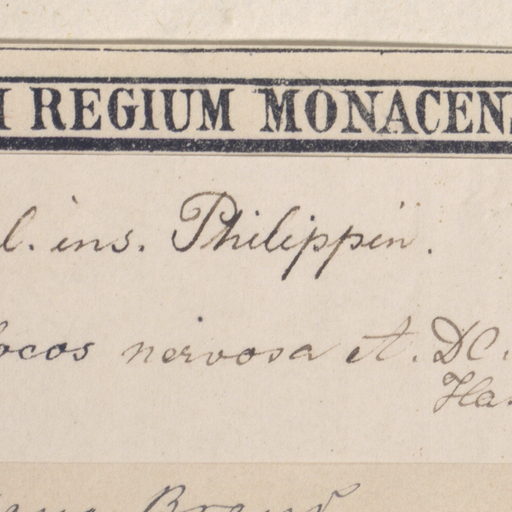 REGIUM MONACEN
l. ins. Philippin.
ocos nervosa A. DC.
Ha
Brand